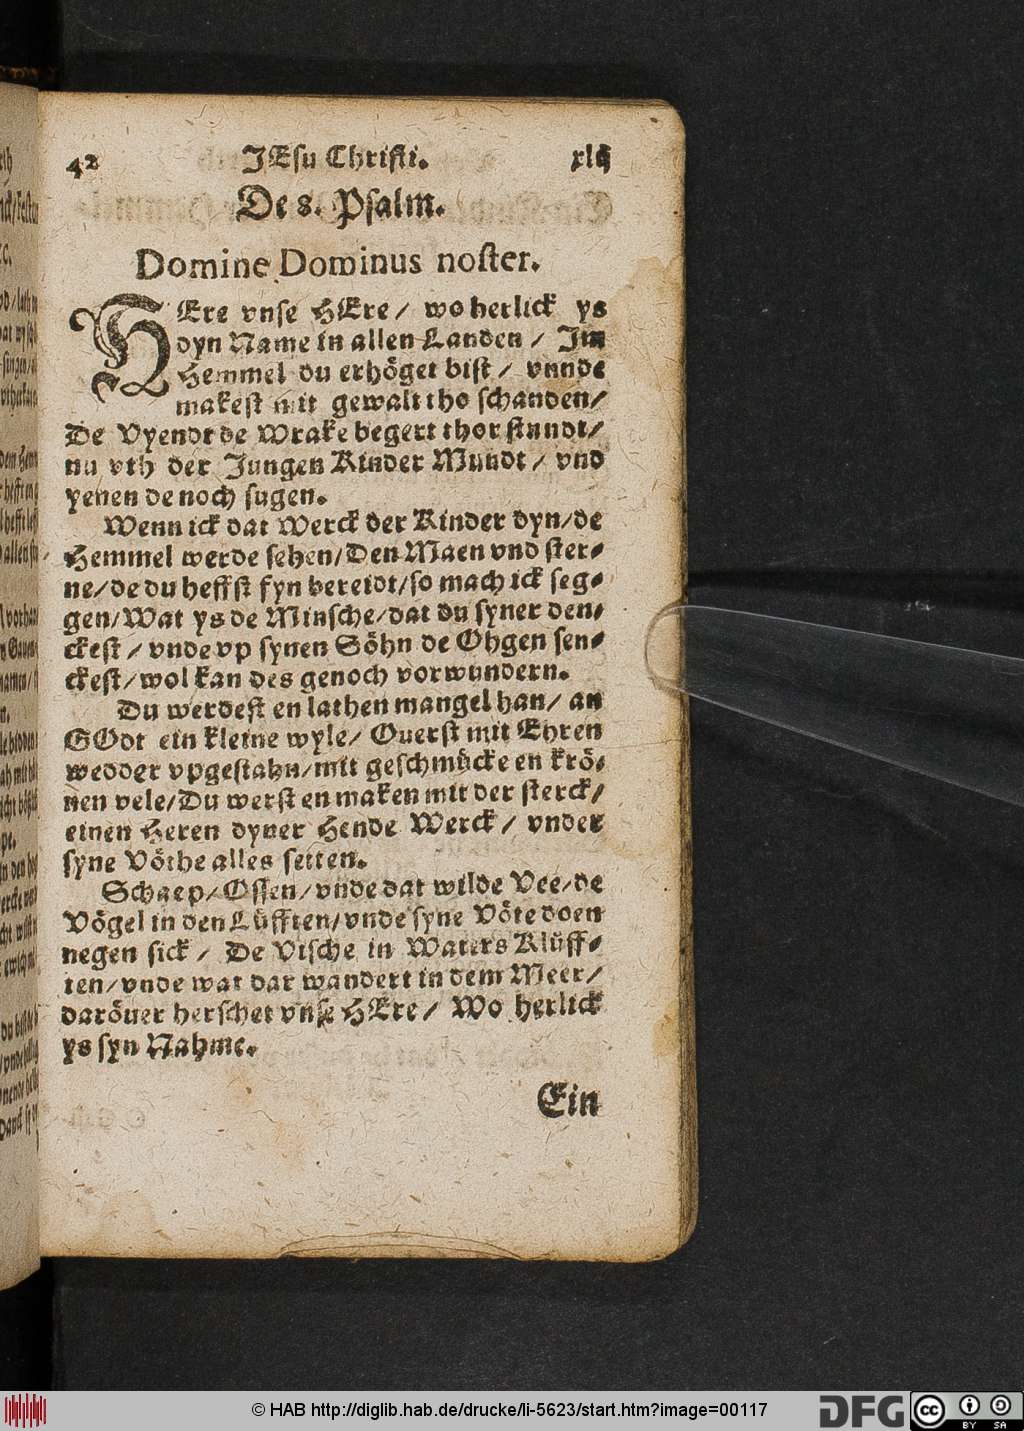 42 JEsu Christi. xlij
De 8. Psalm.
Domine Dominus noster.
HEre vnse HEre / wo herlick ys
dyn Name in allen Landen / Im
Hemmel du erhöget bist / vnnde
makest mit gewalt tho schanden /
De Vyendt de Wrake begert thor stundt /
nu vth der Jungen Kinder Mundt / vnd
yenen de noch sugen.
Wenn ick dat Werck der Kinder dyn / de
Hemmel werde sehen / Den Maen vnd ster-
ne / de du heffst fyn bereidt / so mach ick seg-
gen / Wat ys de Minsche / dat du syner den-
ckest / vnde vp synen Söhn de Ohgen sen-
ckest / wol kan des genoch vorwundern.
Du werdest en lathen mangel han / an
GOdt ein kleine wyle / Ouerst mit Ehren
wedder vpgestahn / mit geschmücke en krö-
nen vele / Du werst en maken mit der sterck /
einen Heren dyner Hende Werck / vnder
syne Vöthe alles setten.
Schaep / Ossen / vnde dat wilde Vee / de
Vögel in den Lüfften / vnde syne Vöte doen
negen sick / De Vische in Waters Klüff-
ten / vnde wat dar wandert in dem Meer /
daröuer herschet vnse HEre / Wo herlick
ys syn Nahme.
Ein
© HAB http://diglib.hab.de/drucke/li-5623/start.htm?image=00117
DFG
cc
BY SA